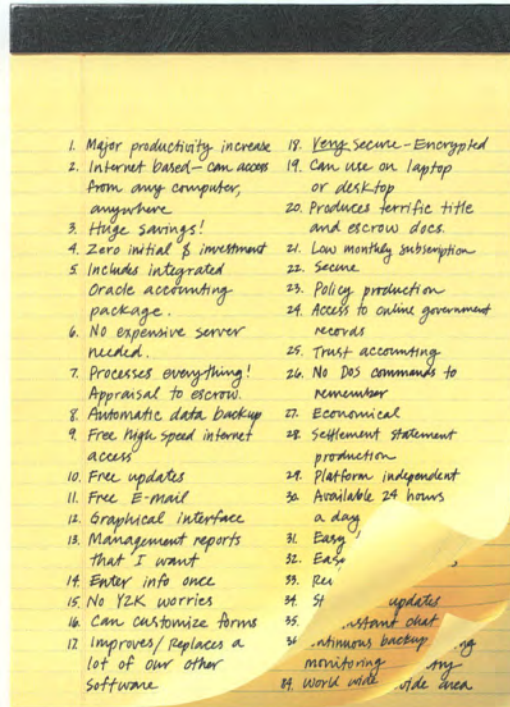 1. Major productivity increase
2. Internet based - can access
from any computer,
anywhere
3. Huge savings!
4. Zero initial $ investment
5. Includes integrated
Oracle accounting
package.
6. No expensive server
needed.
7. Processes everything!
Appraisal to escrow.
8. Automatic data backup
9. Free high speed internet
access
10. Free updates
11. Free E-mail
12. Graphical interface
13. Management reports
that I want
14. Enter info once
15. No Y2K worries
16. Can customize forms
17. Improves/Replaces a
lot of our other
software
18. Very secure - Encrypted
19. Can use on laptop
or desktop
20. Produces terrific title
and escrow docs.
21. Low monthly subscription
22. Secure
23. Policy production
24. Access to online government
records
25. Trust accounting
26. No DOS commands to
remember
27. Economical
28. Settlement statement
production
29. Platform independent
30. Available 24 hours
a day
31. Easy
32.
33.
34. updates
35. chat
36. backup
monitoring
World wide wide area